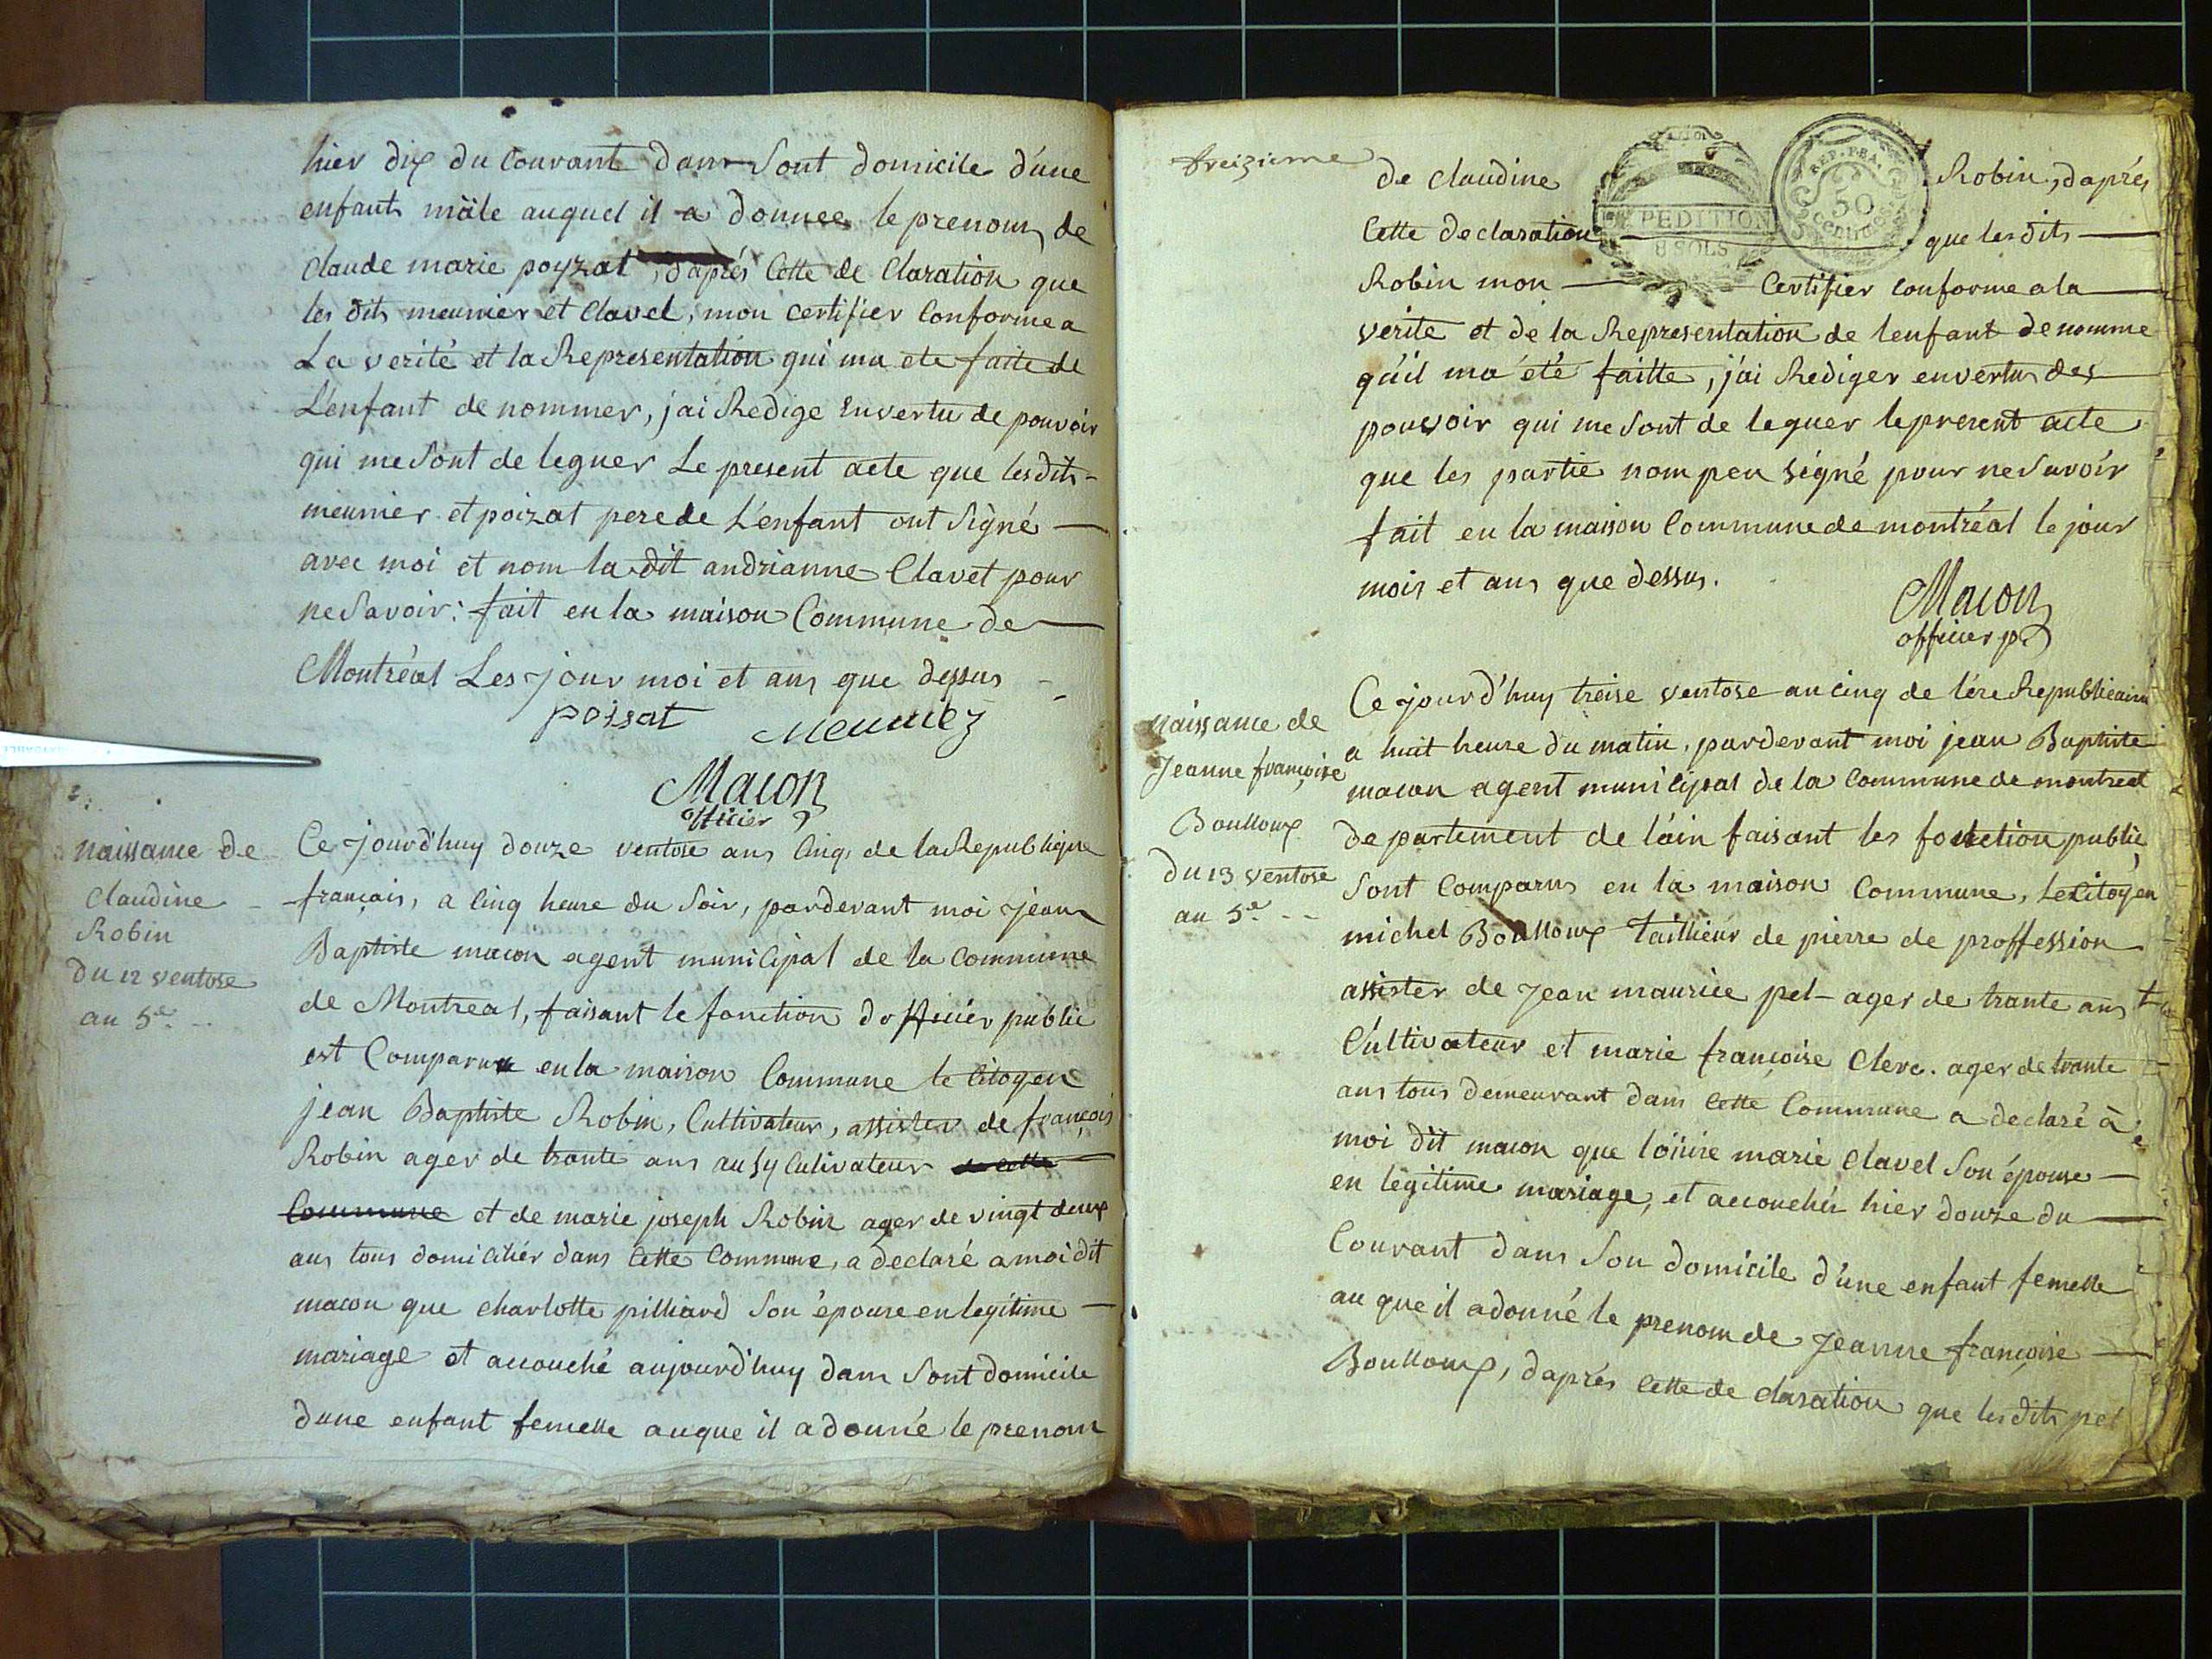 hier dix du Courant dans Sont domicile d'une
enfants mâle auquel il a donnee le prenom de
Claude marie poyzat, d'après Cette de Claration que
les dits meunier et Clavel, mon Certifier Conforme a
La verité et la Representation qui ma ete faite de
L'enfant de nommer, j'ai Redige en vertu de pouvoir
qui me Sont de leguer Le present acte que les dits -
meunier et poizat pere de L'enfant ont Signé —
avec moi et nom la dit andrianne Clavet pour
ne Savoir: fait en la maison Commune de —
Montréal Les Jour moi et ans que dessus -
poisat Meuniez
Macon
officier p
naissance de
Claudine -
Robin
du 12 ventose
an 5e. --
Ce Jourd'huy douze ventose ans Cinq de la Republique
français, a Cinq heure du Soir, pardevant moi Jean
Baptiste macon agent municipal de la Commune
de Montreal, faisant le fonction dofficier public
est Comparu en la maison Commune le Citoyen
jean Baptiste Robin, Cultivateur, assister de françois
Robin ager de trante ans ausy Cultivateur de cette
Commune et de marie joseph Robin ager de vingt deux
ans tous domicilier dans Cette Commune, a declaré a moi dit
macon que charlotte pilliard Son épouse en legitime —
mariage et accouché aujourd'huy dans Sont domicile
dune enfant femelle auque il a donné le prenom
treizieme
de Claudine Robin, daprés
EXPEDITION
8 SOLS
REP. FRA.
50
Centimes
Cette declaration — que les dits —
Robin mon — Certifier conforme a la —
verite et de la Representation de lenfant denomme
qu'il ma été faitte, j'ai Rediger en vertu des —
pouvoir qui me Sont de leguer le present acte
que les partie nom peu Signé pour ne Savoir
fait en la maison Commune de montréal le jour
mois et ans que dessus.
Macon
officier p
naissance de
Jeanne françoise
Boulloux
du 13 ventose
an 5e. --
Ce jourd'huy treise ventose an cinq de l'ére Republicaine
a huit heure du matin, pardevant moi jean Baptiste
macon agent municipal de la Commune de montreal
departement de l'ain faisant les fonction public,
Sont Comparus en la maison Commune, le Citoyen
michel Boulloux taillieur de pierre de proffession
assister de Jean maurice pel- ager de trante ans
Cultivateur et marie françoise Clerc. ager de trante
ans tous demeurant dans Cette Commune a declaré à
moi dit macon que loüise marie Clavel Son épouse —
en légitime mariage, et accouchér hier douze du —
Courant dans Son domicile d'une enfant femelle
au que il a donné le prenom de Jeanne françoise —
Boulloux, d'aprés Cette de claration que les dits pel